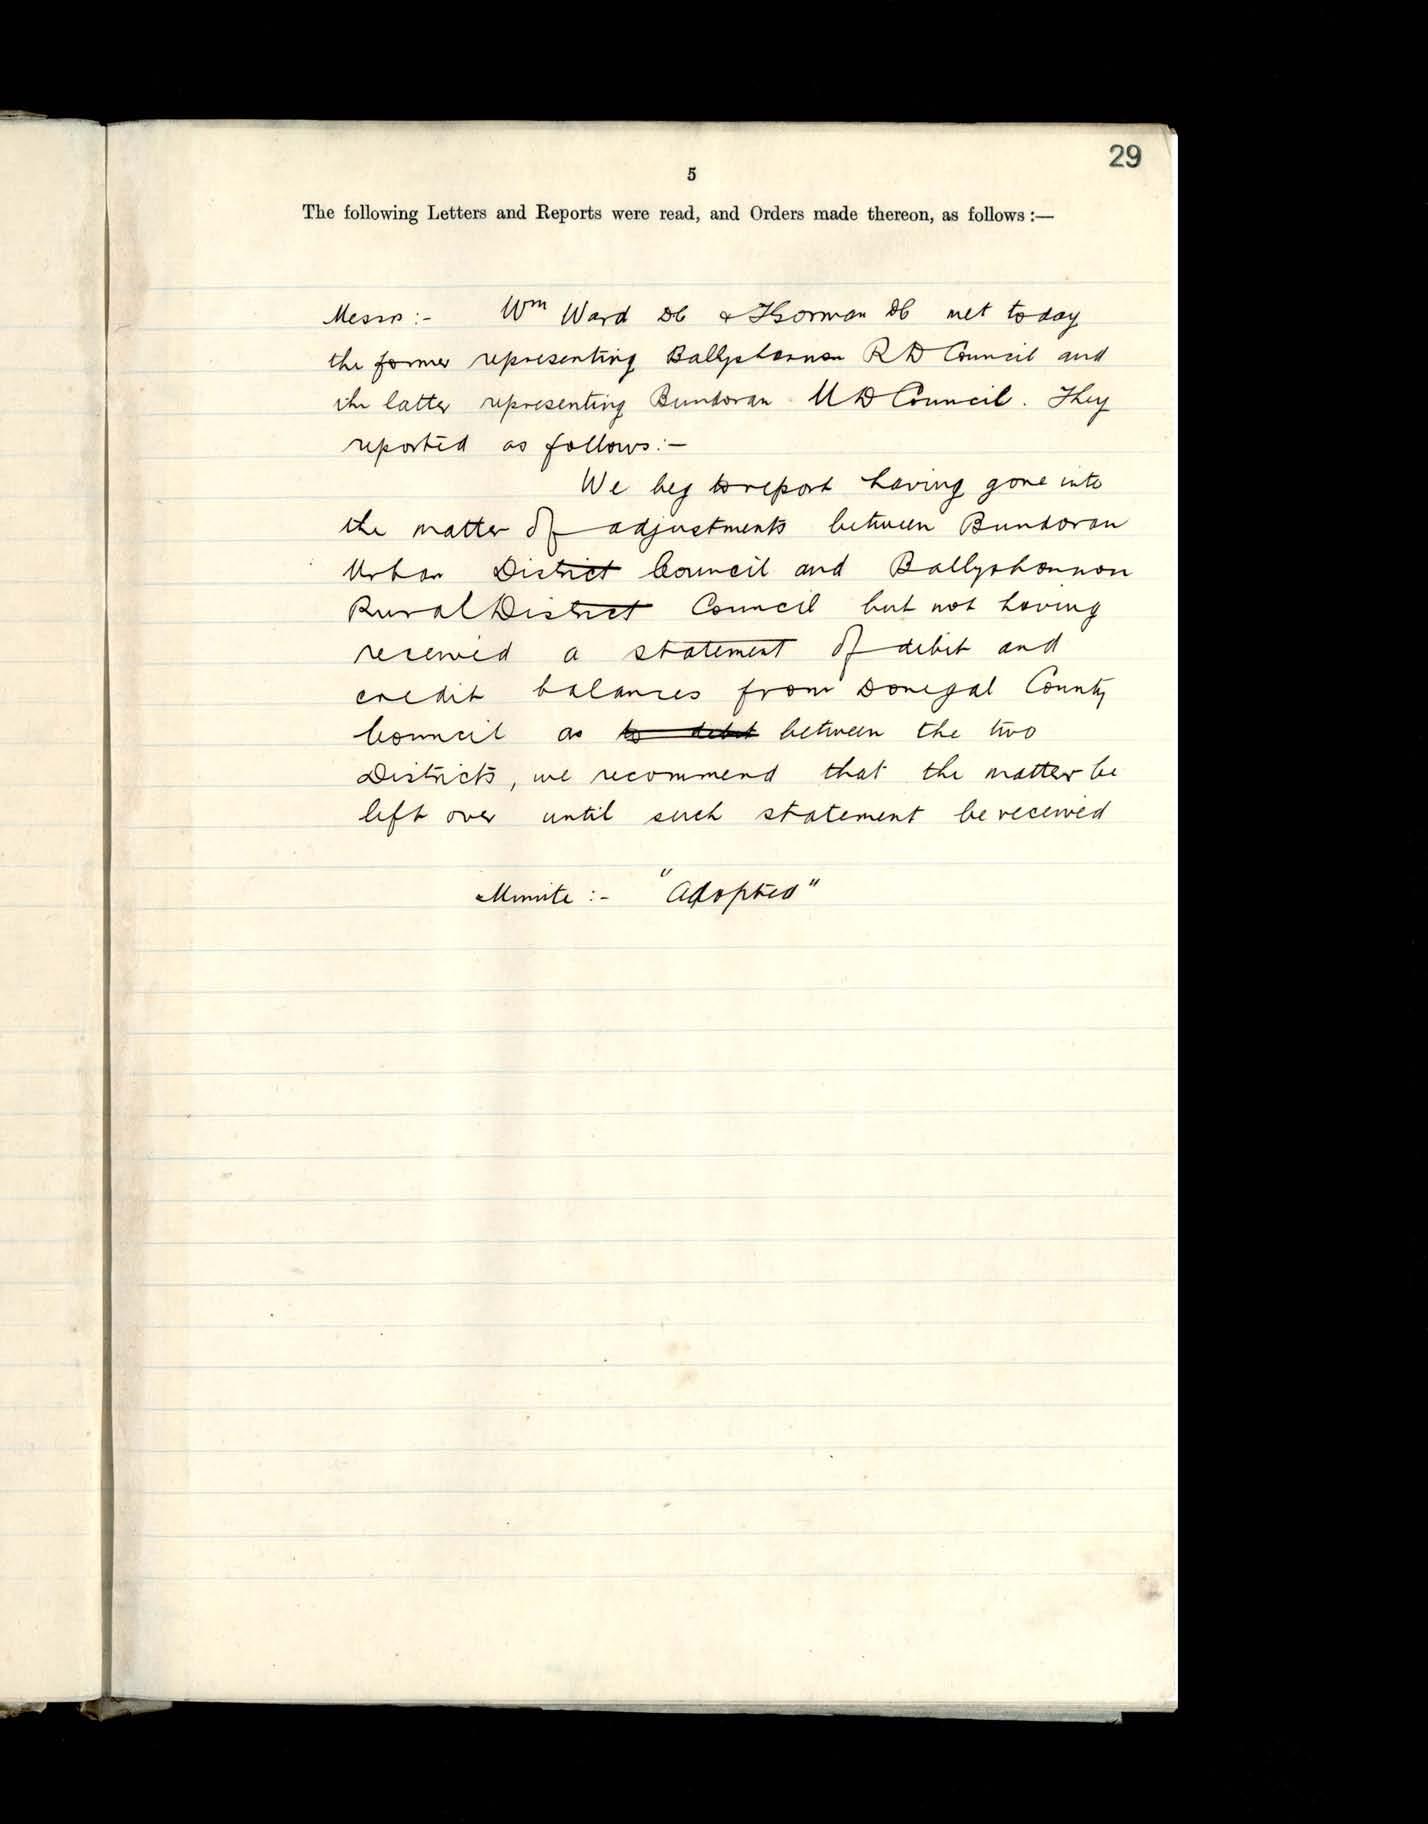 29
5
The following Letters and Reports were read, and Orders made thereon, as follows :—
Messrs :- Wm Ward DC & Gorman DC met today
the former representing Ballyshannon R D Council and
the latter representing Bundoran U D Council. They
reported as follows:-
We beg to report having gone into
the matter of adjustments between Bundoran
Urban District Council and Ballyshannon
Rural District Council but not having
received a statement of debit and
credit balances from Donegal County
Council as to debit between the two
Districts, we recommend that the matter be
left over until such statement be received
Minute :- "Adopted"